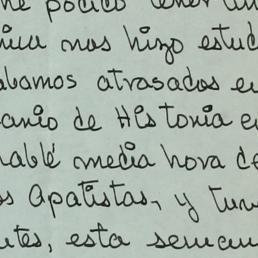 me podido tener un
nica nos hizo estud
abamos atrasados en
anio de Historia e
hablé media hora de
os Apatistas, y tuv
utes, esta seman